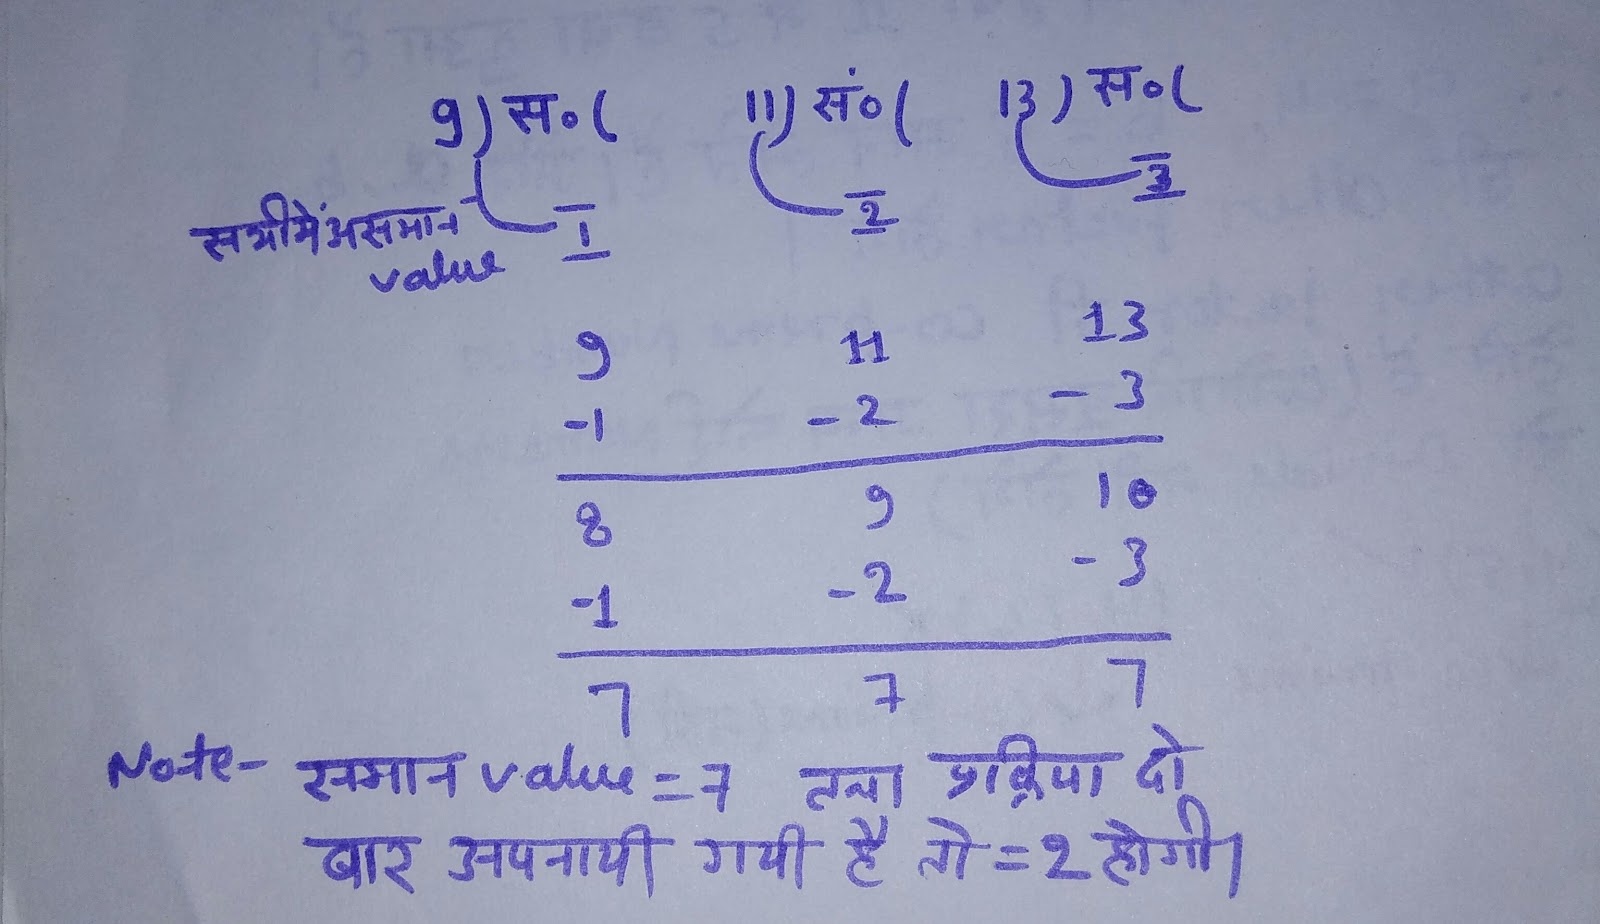 9) स॰( 11) सं॰( 13) स॰(
1 2 3
सभीमें असमान
value
9 11 13
-1 -2 -3
8 9 10
-1 -2 -3
7 7 7
Note- समान value = 7 तथा प्रक्रिया दो
बार अपनायी गयी है तो = 2 होगी।